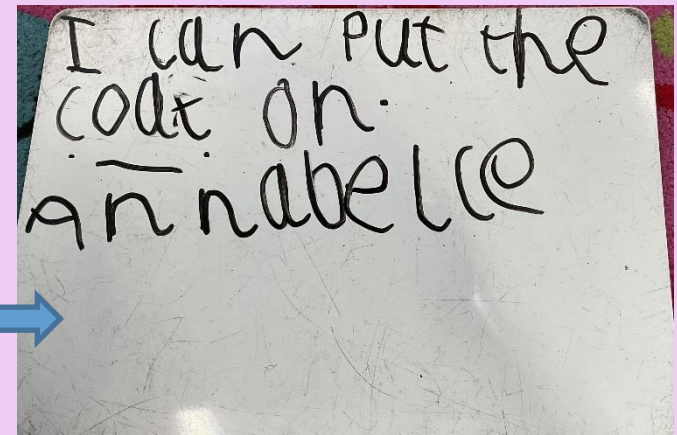 I can put the
coat on.
Annabelle